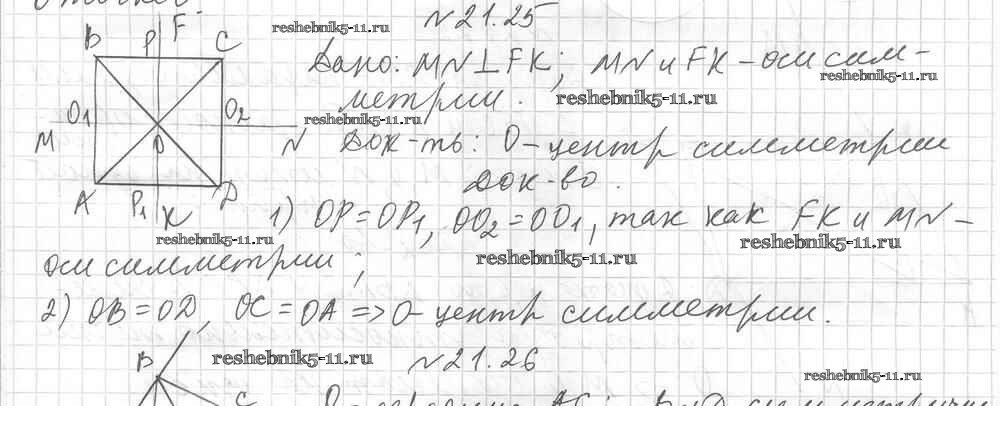 N 21.25
B P F C
Дано: MN ⊥ FK; MN и FK – оси сим-
метрии.
M O₁ O O₂ N
Док-ть: O – центр симметрии
Док-во.
A P₁ K D
1) OP = OP₁, OO₂ = OO₁, так как FK и MN –
оси симметрии;
2) OB = OD, OC = OA => O – центр симметрии.
N 21.26
B
C
reshebnik5-11.ru
reshebnik5-11.ru
reshebnik5-11.ru
reshebnik5-11.ru
reshebnik5-11.ru
reshebnik5-11.ru
reshebnik5-11.ru
reshebnik5-11.ru
reshebnik5-11.ru